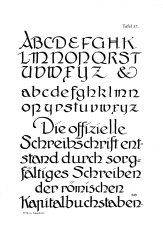 Tafel 27.
ABCDEFGHJK
LMNOPQRST
UVWXYZ &
abcdefghklmn
opqrstuvwxyz
Die offizielle
Schreibschrift ent-
stand durch sorg-
fältiges Schreiben
der römischen
Kapitalbuchstaben.